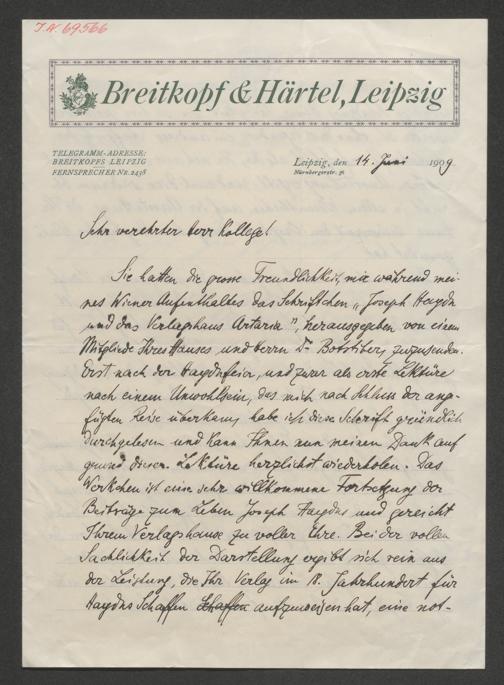 I.N. 69566
Breitkopf & Härtel, Leipzig
TELEGRAMM-ADRESSE:
BREITKOPFS LEIPZIG
FERNSPRECHER NR. 2438
Leipzig, den 14. Juni 1909
Nürnbergerstr. 36
Sehr verehrter Herr Kollege!
Sie hatten die grosse Freundlichkeit, mir während mei-
nes Wiener Aufenthaltes das Schriftchen „Joseph Haydn
und das Verlagshaus Artaria", herausgegeben von einem
Mitgliede Ihres Hauses und Herrn Dr. Botstiber, zuzusenden.
Erst nach der Haydnfeier, und zwar als erste Lektüre
nach einem Unwohlsein, das mich nach Schluss der ange-
fügten Reise überkam, habe ich diese Schrift gründlich
durchgelesen und kann Ihnen nun meinen Dank auf
grund dieser Lektüre herzlichst wiederholen. Das
Werkchen ist eine sehr willkommene Fortsetzung der
Beiträge zum Leben Joseph Haydns und gereicht
Ihrem Verlagshause zu voller Ehre. Bei der vollen
Sachlichkeit der Darstellung ergibt sich rein aus
der Leistung, die Ihr Verlag im 18. Jahrhundert für
Haydns Schaffen Schaffen aufzuweisen hat, eine not-